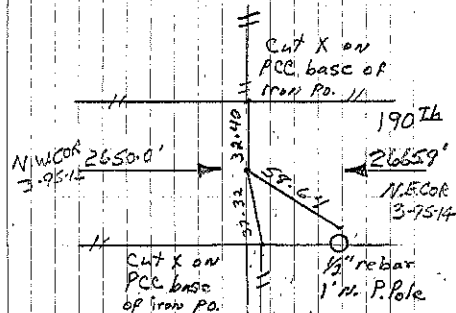 Cut X on
PCC base of
Iron Po.
190 Th
N.W.COR 2650.0'
3-95-14
32.40
26659'
N.E.COR
3-95-14
59.64
37.32
Cut X on
PCC base
of Iron Po.
1/2" rebar
1' N. P.Pole